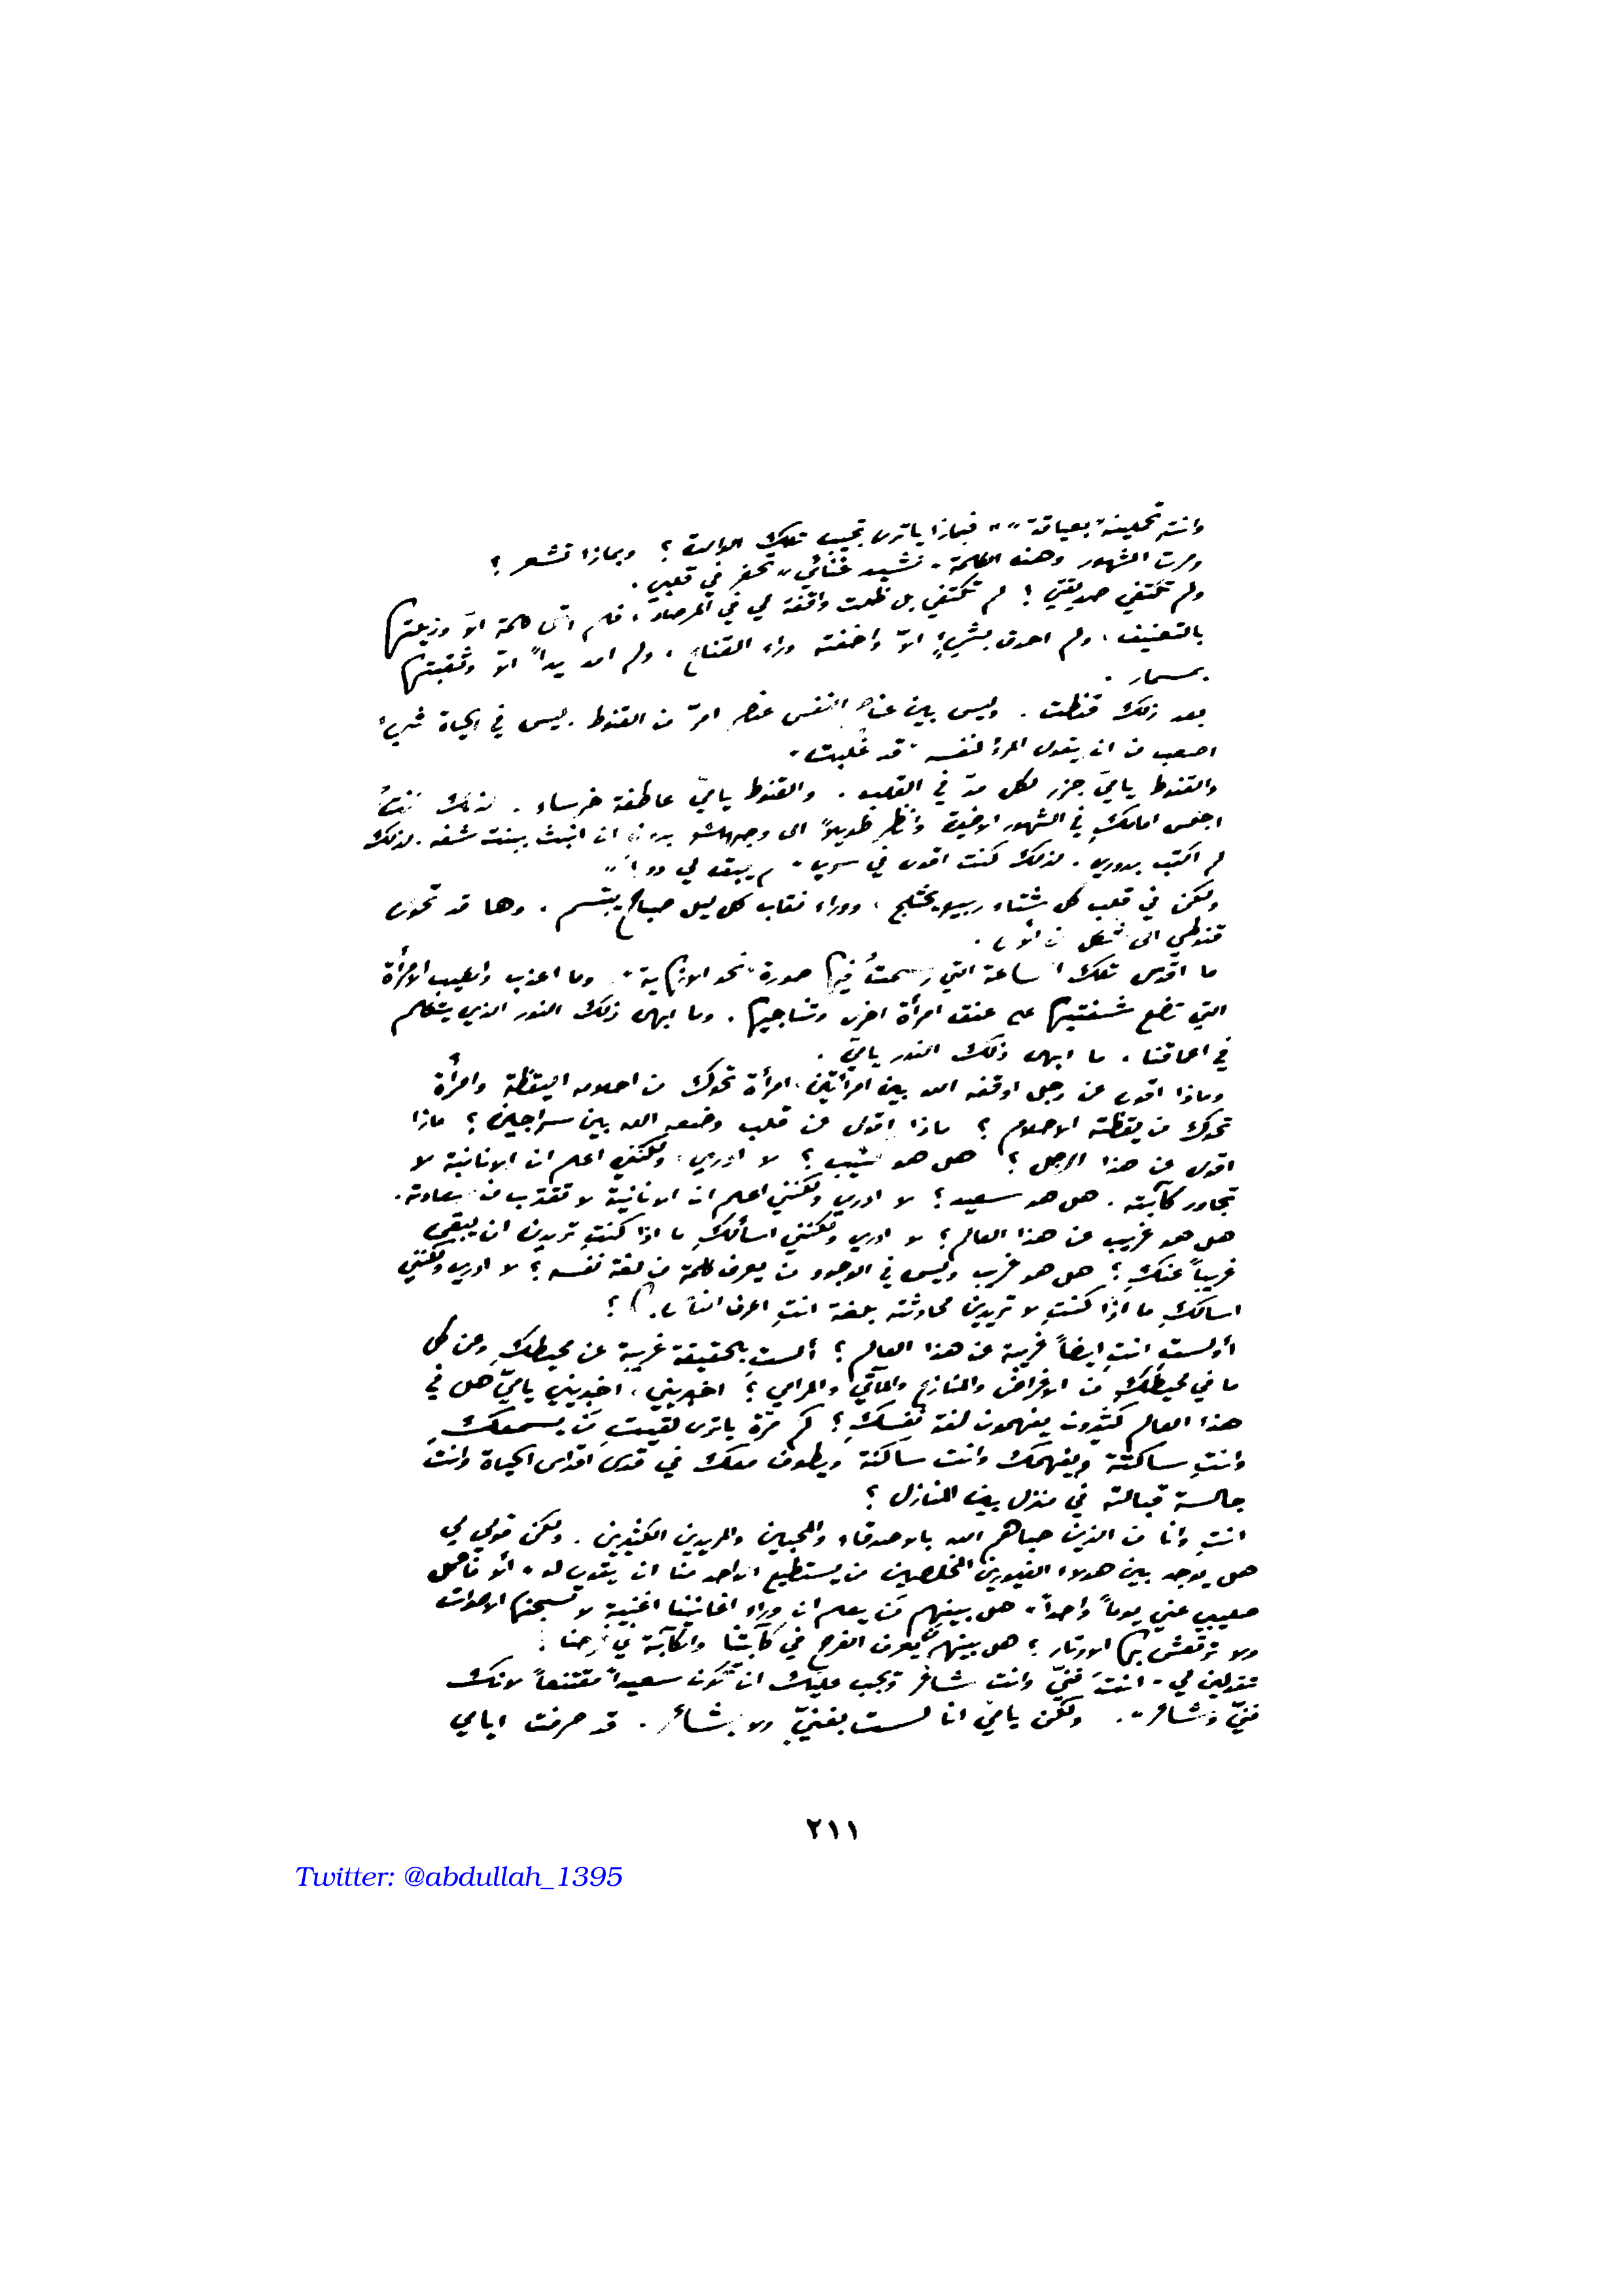 وانتِ تحملينه بعياقة"" فبماذا يا ترى تجيب تلك الوالدة ؟ وبماذا تشعر ؟
ومرت الشهور وهذه الكلمة - نشيد غنائي" تحفر في قلبي .
ولم تكتفي صديقتي ! لم تكتفي بل ظلت واقفة لي في المرصاد ، فلم اقل كلمة الاّ وزيلتها
بالتعنيف ، ولم احدق بشيءٍ الاّ واخفته وراء القناع ، ولم امد يداً الاّ وثقبتها
بمسمار .
بعد ذلك قنطت . وليس بين عناصر النفس عنصر امرّ من القنوط . ليس في الحياة شيءٌ
اصعب من ان يقول المرؤ لنفسه "قد غُلبت"
والقنوط يا ميّ جزر لكل مدّ في القلب . والقنوط يا ميّ عاطفة خرساء . لذلك كنتُ
اجلس امامكِ في الشهور الاخيرة وانظر طويلاً الى وجهكِ بدون ان انبث ببنت شفه . لذلك
لم اكتب بدوري . لذلك كنت اقول في سري " لم يبقَ لي دور "
ولكن في قلب كل شتاء ربيع يختلج ، ووراء نقاب كل ليل صباح يبتسم . وها قد تحول
قنوطي الى شكل من الأمل .
ما اقدس تلك الساعة التي رسمتُ فيها صورة "نحو الانهاية" . وما اعذب واطيب الامرأة
التي تضع شفتيها على عنق امرأة اخرى وتناجيها . وما ابهى ذلك النور الذي يتكلم
في اعماقنا ، ما ابهى ذلك النور يا ميّ .
وماذا اقول عن رجل اوقفه الله بين امرأتين ، امرأة تحوك من احلامه اليقظة وامرأة
تحوك من يقظته الاحلام ؟ ماذا اقول عن قلب وضعه الله بين سراجين ؟ ماذا
اقول عن هذا الرجل ؟ هل هو كئيب ؟ لا ادري ، ولكنني اعلم ان الانانية لا
تجاور كآبته . هل هو سعيد ؟ لا ادري ولكنني اعلم ان الانانية لا تقترب من سعادته .
هل هو غريب عن هذا العالم ؟ لا ادري ولكنني اسألكِ ما اذا كنتِ تريدين ان يبقى
غريباً عنكِ ؟ هل هو غريب وليس في الوجود من يعرف كلمة من لغة نفسه ؟ لا ادري ولكنني
اسألكِ ما اذا كنتِ لا تريدين محادثته بلغة انتِ اعرف الناس بها ؟
أولستِ انتِ ايضاً غريبة عن هذا العالم ؟ ألستِ بالحقيقة غريبة عن محيطكِ وعن كل
ما في محيطكِ من الاغراض والمنازع والمآتي والمرامي ؟ اخبريني ، اخبريني يا ميّ هل في
هذا العالم كثيرون يفهمون لغة نفسكِ ؟ كم مرّة يا ترى لقيتِ مَن يسمعكِ
وانتِ ساكتة ويفهمك وانت ساكنة ويطوف معك في قدس اقداس الحياة وانتَ
جالسة قبالته في منزل بين المنازل ؟
انتِ وانا من الذين حباهم الله بالاصدقاء والمحبين والمريدين الكثيرين . ولكن قولي لي
هل يوجد بين هولاء الغيورين المخلصين من يستطيع الواحد منا ان يقول له " ألا فاحمل
صليبي عني يوماً واحداً " هل بينهم مَن يعلم ان وراء اغانينا اغنية لا تسجنها الاصوات
ولا ترتعش بها الاوتار ؟ هل بينهم مَن يعرف الفرح في كآبتنا والكآبة في فرحنا ؟
تقولين لي " انتَ فنيّ وانت شاعر ويجب عليك ان تكون سعيداً مقتنعاً لانك
فنيّ وشاعر " . ولكن يا ميّ انا لست بفنيّ ولا بشاعر . قد صرفت ايامي
٢١١
Twitter: @abdullah_1395